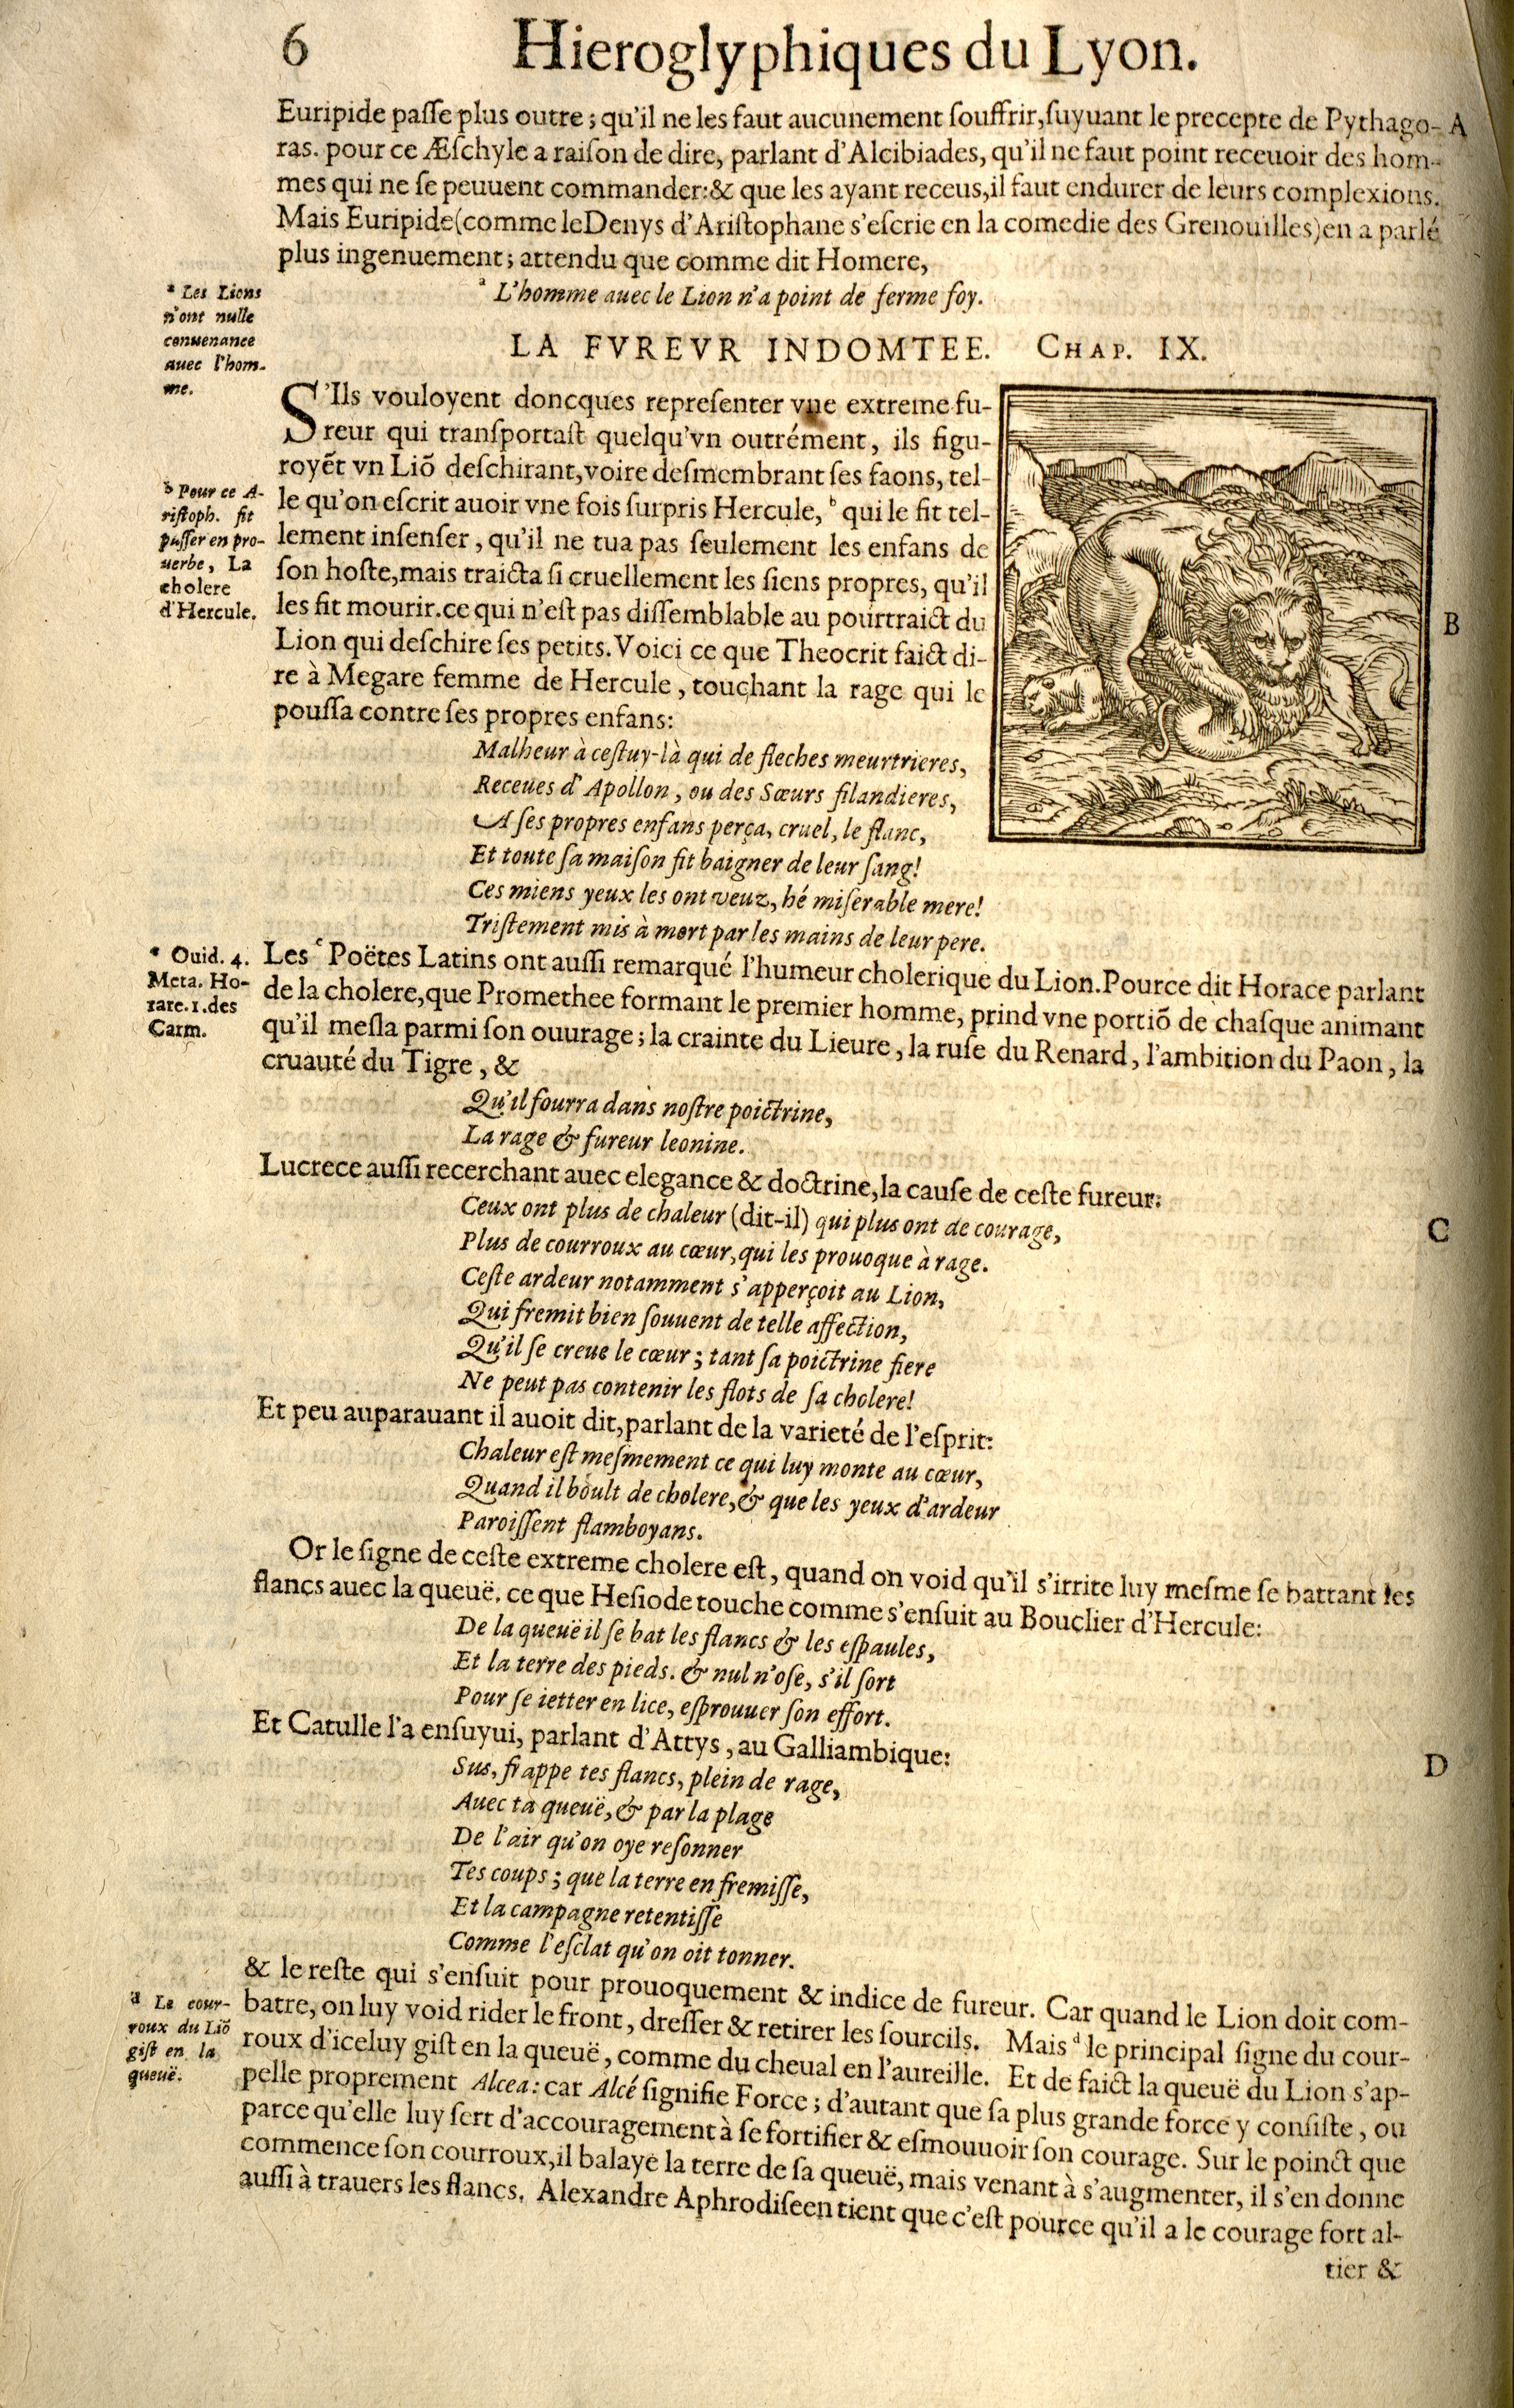 6
Hieroglyphiques du Lyon.
Euripide passe plus outre; qu'il ne les faut aucunement souffrir, suyuant le precepte de Pythago- A
ras. pour ce Æschyle a raison de dire, parlant d'Alcibiades, qu'il ne faut point receuoir des hom-
mes qui ne se peuuent commander: & que les ayant receus, il faut endurer de leurs complexions.
Mais Euripide (comme le Denys d'Aristophane s'escrie en la comedie des Grenouilles) en a parlé
plus ingenuement; attendu que comme dit Homere,
ª L'homme auec le Lion n'a point de ferme foy.
ª Les Lions
n'ont nulle
conuenance
auec l'hom-
me.
LA FVREVR INDOMTEE. CHAP. IX.
S'Ils vouloyent doncques representer vne extreme fu-
reur qui transportast quelqu'vn outrément, ils figu-
royẽt vn Liõ deschirant, voire desmembrant ses faons, tel-
le qu'on escrit auoir vne fois surpris Hercule, ᵇ qui le fit tel-
lement insenser, qu'il ne tua pas seulement les enfans de
son hoste, mais traicta si cruellement les siens propres, qu'il
les fit mourir. ce qui n'est pas dissemblable au pourtraict du
Lion qui deschire ses petits. Voici ce que Theocrit faict di-
re à Megare femme de Hercule, touchant la rage qui le
poussa contre ses propres enfans:
ᵇ Pour ce A-
ristoph. fit
passer en pro-
uerbe, La
cholere
d'Hercule.
B
Malheur à cestuy-là qui de fleches meurtrieres,
Receues d'Apollon, ou des Sœurs filandieres,
A ses propres enfans perça, cruel, le flanc,
Et toute sa maison fit baigner de leur sang!
Ces miens yeux les ont veuz, hé miserable mere!
Tristement mis à mort par les mains de leur pere.
ᶜ Ouid. 4.
Meta. Ho-
race. 1. des
Carm.
Les ᶜ Poëtes Latins ont aussi remarqué l'humeur cholerique du Lion. Pource dit Horace parlant
de la cholere, que Promethee formant le premier homme, prind vne portiõ de chasque animant
qu'il mesla parmi son ouurage; la crainte du Lieure, la ruse du Renard, l'ambition du Paon, la
cruauté du Tigre, &
Qu'il fourra dans nostre poictrine,
La rage & fureur leonine.
Lucrece aussi recerchant auec elegance & doctrine, la cause de ceste fureur:
Ceux ont plus de chaleur (dit-il) qui plus ont de courage,
C
Plus de courroux au cœur, qui les prouoque à rage.
Ceste ardeur notamment s'apperçoit au Lion,
Qui fremit bien souuent de telle affection,
Qu'il se creue le cœur; tant sa poictrine fiere
Ne peut pas contenir les flots de sa cholere!
Et peu auparauant il auoit dit, parlant de la varieté de l'esprit:
Chaleur est mesmement ce qui luy monte au cœur,
Quand il boult de cholere, & que les yeux d'ardeur
Paroissent flamboyans.
Or le signe de ceste extreme cholere est, quand on void qu'il s'irrite luy mesme se battant les
flancs auec la queuë. ce que Hesiode touche comme s'ensuit au Bouclier d'Hercule:
De la queuë il se bat les flancs & les espaules,
Et la terre des pieds. & nul n'ose, s'il sort
Pour se ietter en lice, esprouuer son effort.
Et Catulle l'a ensuyui, parlant d'Attys, au Galliambique:
D
Sus, frappe tes flancs, plein de rage,
Auec ta queuë, & par la plage
De l'air qu'on oye resonner
Tes coups; que la terre en fremisse,
Et la campagne retentisse
Comme l'esclat qu'on oit tonner.
& le reste qui s'ensuit pour prouoquement & indice de fureur. Car quand le Lion doit com-
batre, on luy void rider le front, dresser & retirer les sourcils. Mais ᵈ le principal signe du cour-
roux d'iceluy gist en la queuë, comme du cheual en l'aureille. Et de faict la queuë du Lion s'ap-
pelle proprement Alcea: car Alcé signifie Force; d'autant que sa plus grande force y consiste, ou
parce qu'elle luy sert d'accouragement à se fortifier & esmouuoir son courage. Sur le poinct que
commence son courroux, il balaye la terre de sa queuë, mais venant à s'augmenter, il s'en donne
aussi à trauers les flancs. Alexandre Aphrodiseen tient que c'est pource qu'il a le courage fort al-
ᵈ Le cour-
roux du Liõ
gist en la
queuë.
tier &